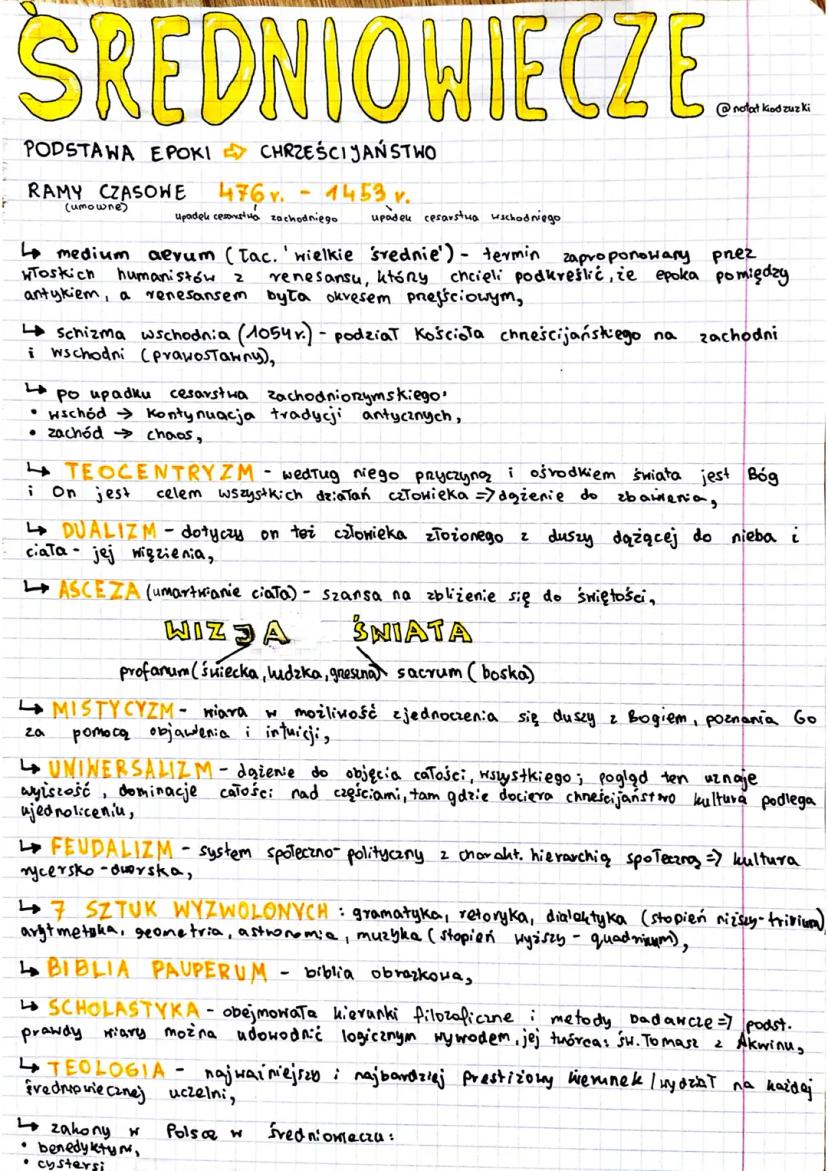 ŚREDNIOWIECZE
@notatkiodzuzki
PODSTAWA EPOKI ⇨ CHRZEŚCIJAŃSTWO
RAMY CZASOWE 476 r. - 1453 r.
(umowne)
upadek cesarstwa zachodniego upadek cesarstwa wschodniego
↳ medium aevum (łac. 'wielkie średnie') - termin zaproponowany przez
włoskich humanistów z renesansu, który chcieli podkreślić, że epoka pomiędzy
antykiem, a renesansem była okresem przejściowym,
↳ schizma wschodnia (1054 r.) - podział Kościoła chrześcijańskiego na zachodni
i wschodni (prawosławny),
↳ po upadku cesarstwa zachodniorzymskiego:
• wschód → kontynuacja tradycji antycznych,
• zachód → chaos,
↳ TEOCENTRYZM - według niego przyczyną i ośrodkiem świata jest Bóg
i On jest celem wszystkich działań człowieka => dążenie do zbawienia,
↳ DUALIZM - dotyczy on też człowieka złożonego z duszy dążącej do nieba i
ciała - jej więzienia,
↳ ASCEZA (umartwianie ciała) - szansa na zbliżenie się do świętości,
WIZJA ŚWIATA
profanum (świecka, ludzka, grzeszna) sacrum (boska)
↳ MISTYCYZM - wiara w możliwość zjednoczenia się duszy z Bogiem, poznania Go
za pomocą objawienia i intuicji,
↳ UNIWERSALIZM - dążenie do objęcia całości, wszystkiego; pogląd ten uznaje
wyższość, dominacje całości nad częściami, tam gdzie dociera chrześcijaństwo kultura podlega
ujednoliceniu,
↳ FEUDALIZM - system społeczno-polityczny z charakt. hierarchią społeczną => kultura
rycersko-dworska,
↳ 7 SZTUK WYZWOLONYCH : gramatyka, retoryka, dialektyka (stopień niższy - trivium)
arytmetyka, geometria, astronomia, muzyka (stopień wyższy - quadrivium),
↳ BIBLIA PAUPERUM - biblia obrazkowa,
↳ SCHOLASTYKA - obejmowała kierunki filozoficzne i metody badawcze => podst.
prawdy wiary można udowodnić logicznym wywodem, jej twórca: św. Tomasz z Akwinu,
↳ TEOLOGIA - najważniejszy i najbardziej prestiżowy kierunek / wydział na każdej
średniowiecznej uczelni,
↳ zakony w Polsce w średniowieczu:
• benedyktyni,
• cystersi